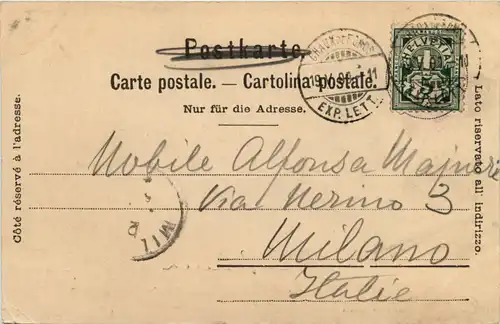 Postkarte.
Carte postale. — Cartolina postale.
Nur für die Adresse.
Côté réservé à l'adresse.
Lato riservato all' indirizzo.
HELVETIA
5
CHAUX-DE-FONDS
19
11
EXP. LETT.
Nobile Alfonsa Mainoni
Via Nerino 3
Milano
Italie
MIL